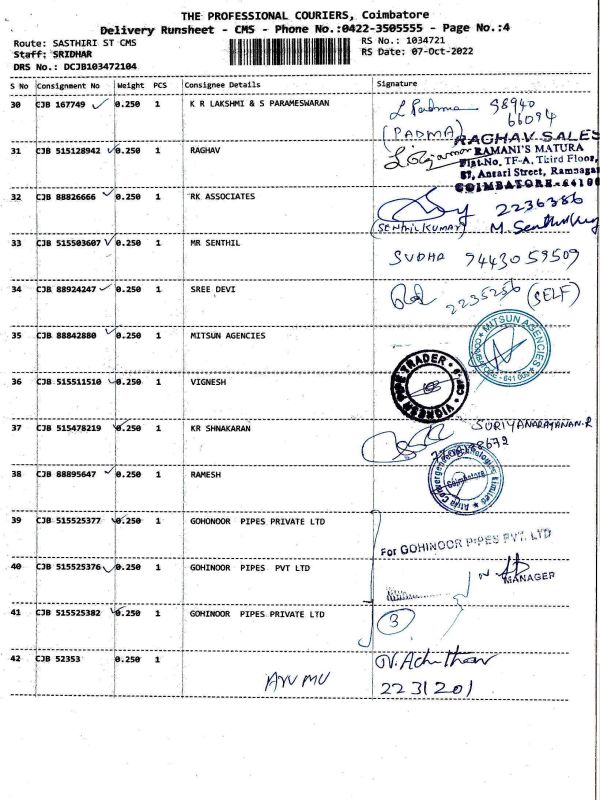 THE PROFESSIONAL COURIERS, Coimbatore
Delivery Runsheet - CMS - Phone No.:0422-3505555 - Page No.:4
Route: SASTHIRI ST CMS
RS No.: 1034721
Staff: SRIDHAR
RS Date: 07-Oct-2022
DRS No.: DCJB103472104
S No Consignment No Weight PCS Consignee Details Signature
30 CJB 167749 0.250 1 K R LAKSHMI & S PARAMESWARAN
L Padma 98940
66094
(PADMA)
31 CJB 515128942 0.250 1 RAGHAV
RAGHAV SALES
RAMANI'S MATURA
Flat-No. TF-A, Third Floor,
57, Ansari Street, Ramnagar
COIMBATORE-64100
32 CJB 88826666 0.250 1 RK ASSOCIATES
2236386
(SENTHIL KUMAR) M. Senthil
33 CJB 515503607 0.250 1 MR SENTHIL
SUDHA 9443059509
34 CJB 88924247 0.250 1 SREE DEVI
2235256 (SELF)
35 CJB 88842880 0.250 1 MITSUN AGENCIES
MITSUN AGENCIES
COIMBATORE - 641 009
36 CJB 515511510 0.250 1 VIGNESH
37 CJB 515478219 0.250 1 KR SHNAKARAN
SURIYANARAYANAN.R
38 CJB 88895647 0.250 1 RAMESH
Coimbatore
39 CJB 515525377 0.250 1 GOHONOOR PIPES PRIVATE LTD
For GOHINOOR PIPES PVT. LTD
40 CJB 515525376 0.250 1 GOHINOOR PIPES PVT LTD
MANAGER
41 CJB 515525382 0.250 1 GOHINOOR PIPES PRIVATE LTD
3
42 CJB 52353 0.250 1
2231201